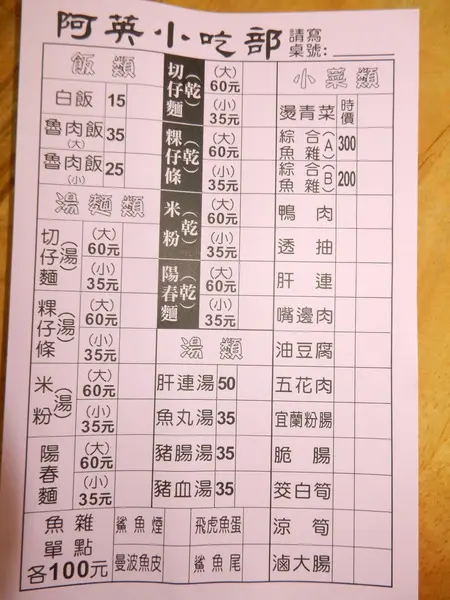 阿英小吃部 請寫桌號：
飯類
白飯 15
魯肉飯(大) 35
魯肉飯(小) 25
湯麵類
切仔麵(湯) (大)60元 (小)35元
粿仔條(湯) (大)60元 (小)35元
米粉(湯) (大)60元 (小)35元
陽春麵 (大)60元 (小)35元
切仔麵(乾) (大)60元 (小)35元
粿仔條(乾) (大)60元 (小)35元
米粉(乾) (大)60元 (小)35元
陽春麵(乾) (大)60元 (小)35元
湯類
肝連湯 50
魚丸湯 35
豬腸湯 35
豬血湯 35
小菜類
燙青菜 時價
綜合魚雜(A) 300
綜合魚雜(B) 200
鴨肉
透抽
肝連
嘴邊肉
油豆腐
五花肉
宜蘭粉腸
脆腸
筊白筍
涼筍
滷大腸
魚雜單點各100元
鯊魚煙
飛虎魚蛋
曼波魚皮
鯊魚尾